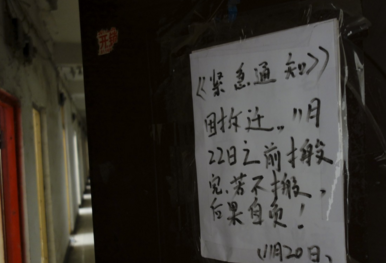 《紧急通知》
因拆迁，11月
22日之前搬
完，若不搬，
后果自负！
11月20日、